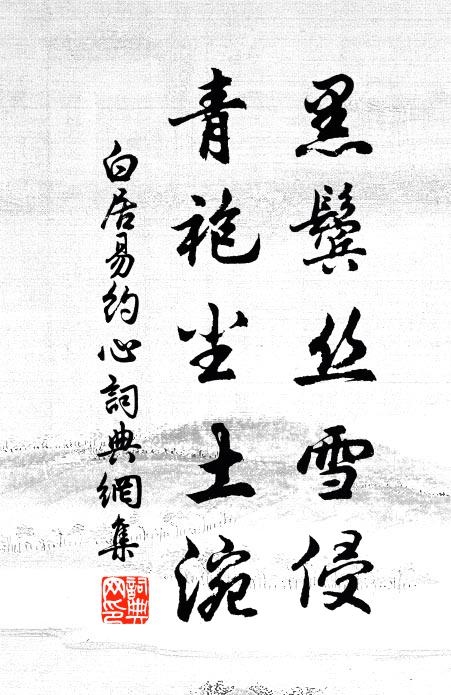 黑鬓丝雪侵
青袍尘土涴
白居易约心詞典網集
詞典网印